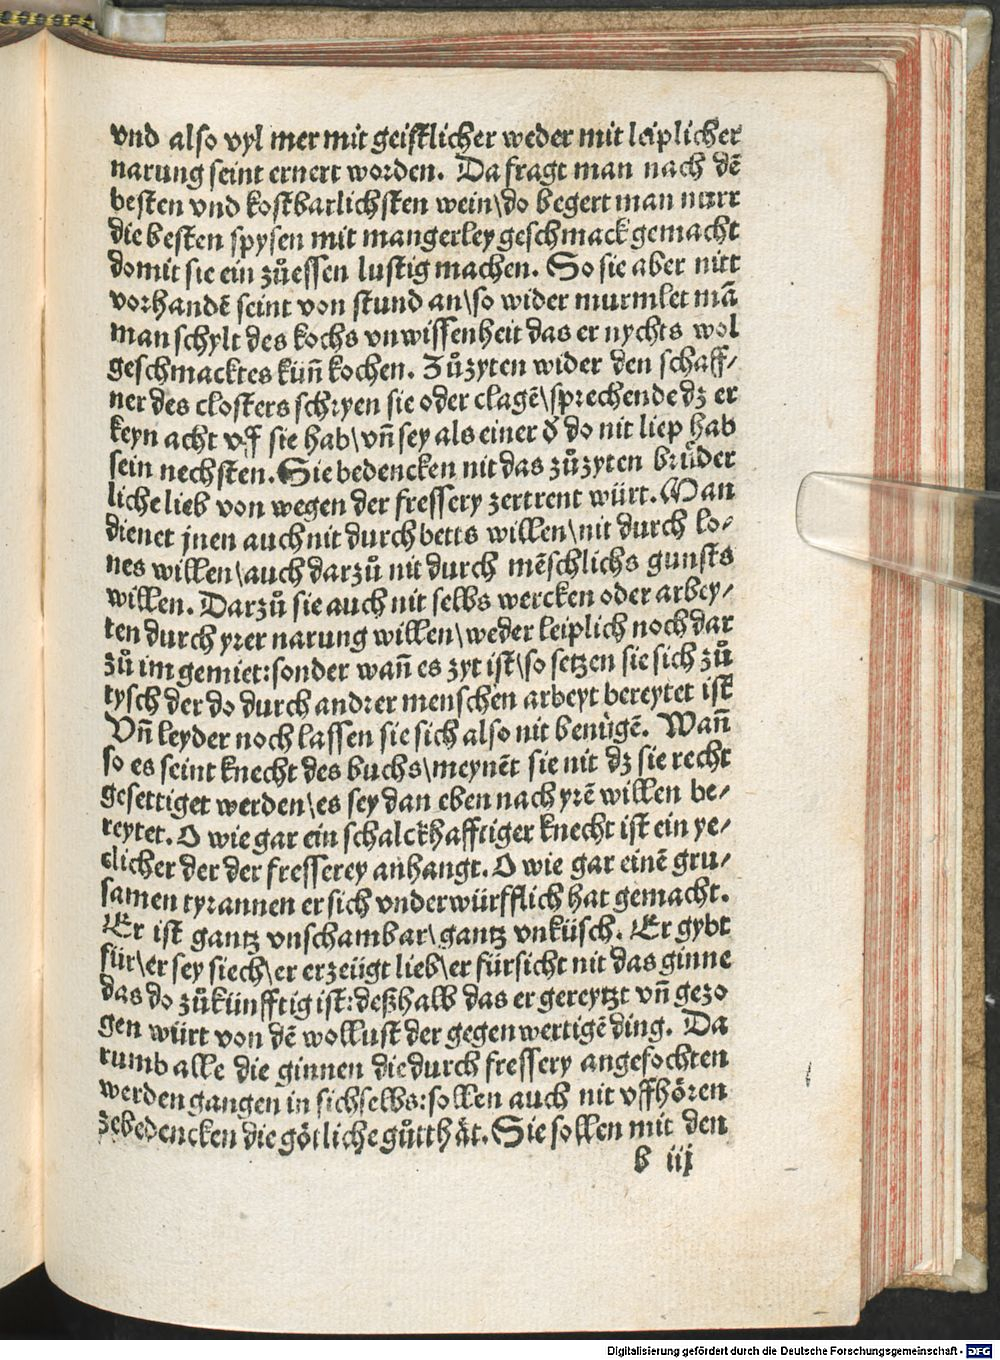 vnd also vyl mer mit geistlicher weder mit leiplicher
narung seint ernert worden. Da fragt man nach dē
besten vnd kostbarlichsten wein\do begert man nurr
die besten spysen mit mangerley geschmack gemacht
domit sie ein zůessen lustig machen. So sie aber nitt
vorhandē seint von stund an\so wider murmlet mā
man schylt des kochs vnwissenheit das er nychts wol
geschmacktes küñ kochen. Zůzyten wider den schaff⸗
ner des closters schryen sie oder clagē\sprechende dz er
keyn acht vff sie hab\vñ sey als einer d̕ do nit liep hab
sein nechsten. Sie bedencken nit das zůzyten brůder
liche lieb von wegen der fressery zertrent würt. Man
dienet jnen auch nit durch betts willen\nit durch lo⸗
nes willen\auch darzů nit durch mēschlichs gunsts
willen. Darzů sie auch nit selbs wercken oder arbey⸗
ten durch yrer narung willen\weder leiplich noch dar
zů im gemiet:sonder wañ es zyt ist\so setzen sie sich zů
tysch der do durch andrer menschen arbeyt bereytet ist
Vñ leyder noch lassen sie sich also nit benůgē. Wañ
so es seint knecht des buchs\meynēt sie nit dz sie recht
gesettiget werden\es sey dan eben nach yrē willen be⸗
reytet. O wie gar ein schalckhafftiger knecht ist ein ye⸗
clicher der der fresserey anhangt. O wie gar einē gru⸗
samen tyrannen er sich vnderwürfflich hat gemacht.
Er ist gantz vnschambar\gantz vnküsch. Er gybt
für\er sey siech\er erzeügt lieb\er fürsicht nit das ginne
das do zůkünfftig ist:deßhalb das er gereytzt vñ gezo
gen würt von dē wollust der gegenwertigē ding. Da
rumb alle die ginnen die durch fressery angefochten
werden gangen in sichselbs:sollen auch nit vffhören
zebedencken die götliche gůtthät. Sie sollen mit den
b iij
Digitalisierung gefördert durch die Deutsche Forschungsgemeinschaft - DFG